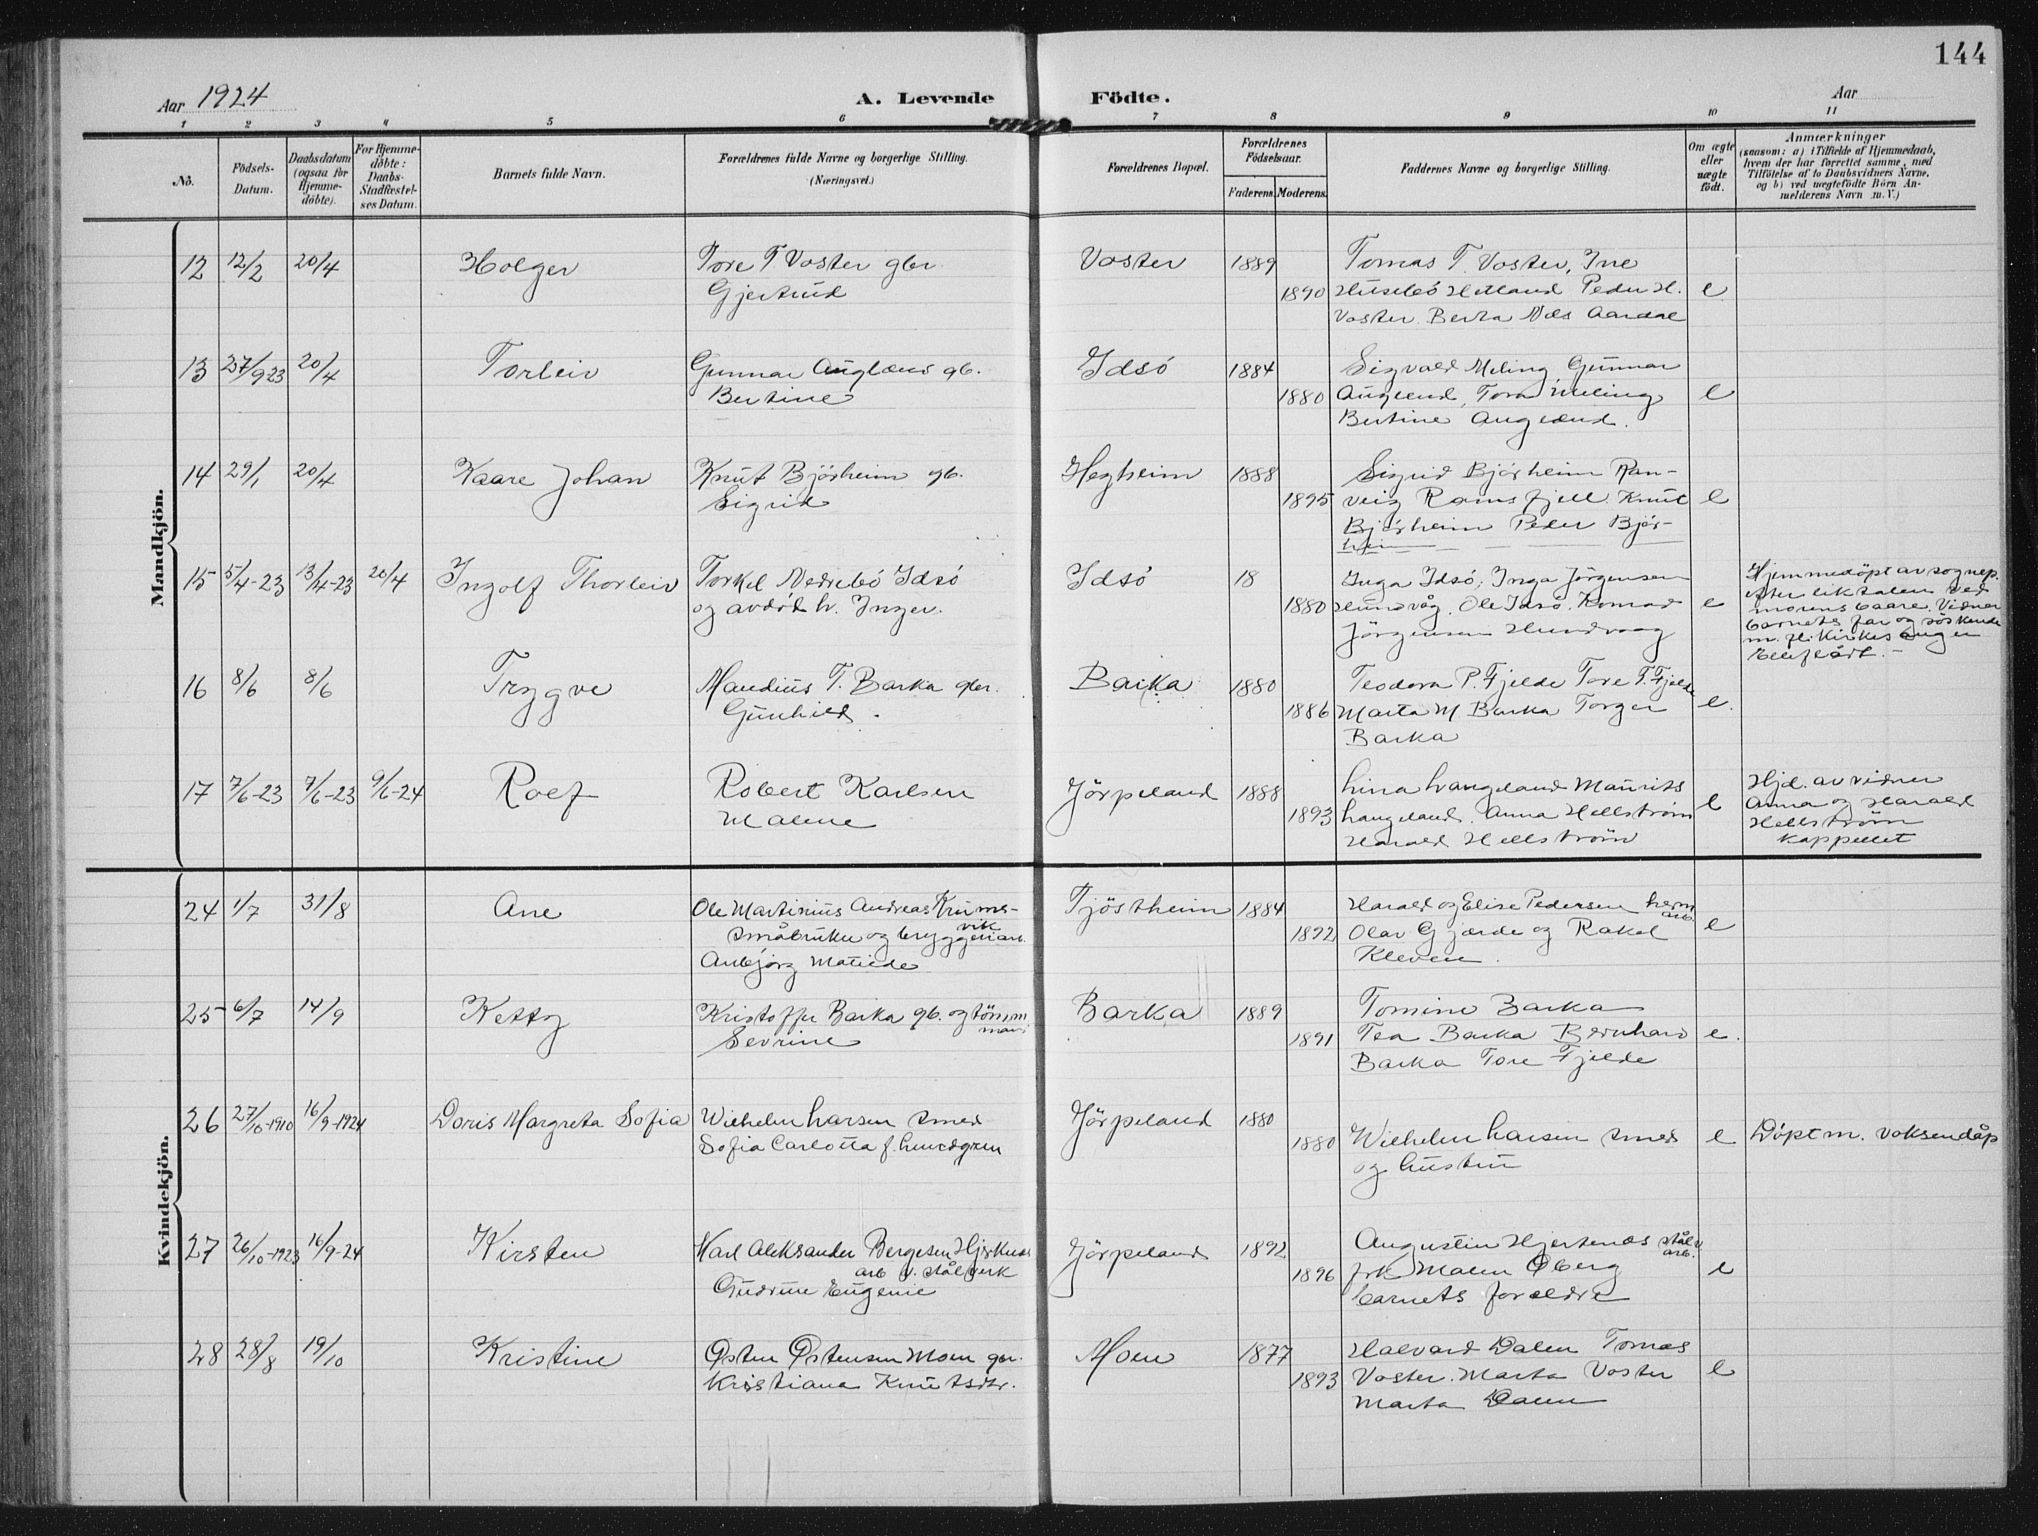 144
Aar 1924
A. Levende Födte.
Aar
1 2 3 4 5 6 7 8 9 10 11
No.
Födsels-Datum.
Daabsdatum (ogsaa for Hjemme-döbte).
For Hjemme-döbte: Daabs-Stadfæstel-ses Datum.
Barnets fulde Navn.
Forældrenes fulde Navne og borgerlige Stilling. (Næringsvei.)
Forældrenes Bopæl.
Forældrenes Födselsaar.
Faderens. Moderens.
Faddernes Navne og borgerlige Stilling.
Om ægte eller uægte födt.
Anmærkninger
(saasom: a) i Tilfælde af Hjemmedaab, hvem der har forrettet samme, med Tilföielse af to Daabsvidners Navne, og b) ved uægtefödte Börn An-melderens Navn m.V.)
Mandkjön.
12 12/2 20/4 Holger Tore T Voster gbr. Voster 1889 Tomas T. Voster, Ine
Gjertrud 1890 Husebö Hetland Peder H. e
Voster Berta Næs Aardal
13 27/9 23 20/4 Torleiv Gunnar Auglænd gb. Idsö 1884 Sigvald Meling Gunnar
Bertine 1880 Auglend, Tora Meling e
Bertine Auglænd.
14 29/1 20/4 Kaare Johan Knut Bjørheim gb. Hegheim 1888 Sigrid Bjørheim Ran-
Sigrid 1895 veig Ramsfjell Knut e
Bjørheim Peder Bjør-
heim
15 5/4-23 13/4-23 20/4 Ingolf Thorleiv Torkel Nedrebö Idsö Idsö 18 Inga Idsö, Inga Jörgensen Hjemmedöpt av sognep.
og avdöde h. Inger. 1880 Hundvåg, Ole Idsö, Konrad e efter liktalen ved
Jörgensen Hundvaag morens baare. Vidner
barnets far og söskende
m. fl. Kirkesanger
Ellefsdt. -
16 8/6 8/6 Trygve Maudius T. Barka gbr. Barka 1880 Teodora P. Fjelde Tore T. Fjelde
Gunhild. 1886 Marta M Barka Torger e.
Barka
17 7/6-23 7/6-23 9/6-24 Rolf Robert Karlsen Jörpeland 1888 Lina Langeland Maurits Hjd. av vidner
Malene 1893 Langeland. Anna Hellström e Anna og Harald
Harald Hellström Hellström
kappellet
Kvindekjön.
24 1/7 31/8 Ane Ole Martinius Andreas Krums- Tjöstheim 1884 Harald og Elise Pedersen herm
vik arb.
småbruker og bryggeriarb. 1892 Olav Gjærde og Rakel e
Anbjørg Matilde Kleven.
25 6/7 14/9 Ketty Kristoffer Barka gb. og tömm Barka 1889 Tomine Barka
mand
Sevrine 1891 Tea Barka Bernhard e.
Barka Tore Fjelde
26 27/10-1910 16/9-1924 Doris Margreta Sofia Wilhelm Larsen smed Jörpeland 1880
Sofia Carlotta f. Lundgren 1880 Wilhelm Larsen smed e Döpt m. voksendåp
og hustru
27 26/10-1923 16/9-24 Kirsten Karl Aleksander Bergesen Hjertnæs Jörpeland 1892 Augustin Hjertenæs stålv
arb v. stålverk arb.
Gudrun Eugenie 1896 frk Malen Øberg e
barnets foreldre
28 28/8 19/10 Kristine Østen Østensen Moen gbr. Moen 1877 Halvard Dalen Tomas
Kristiana Knutsdtr. 1893 Voster. Marta Voster e
Marta Dalen